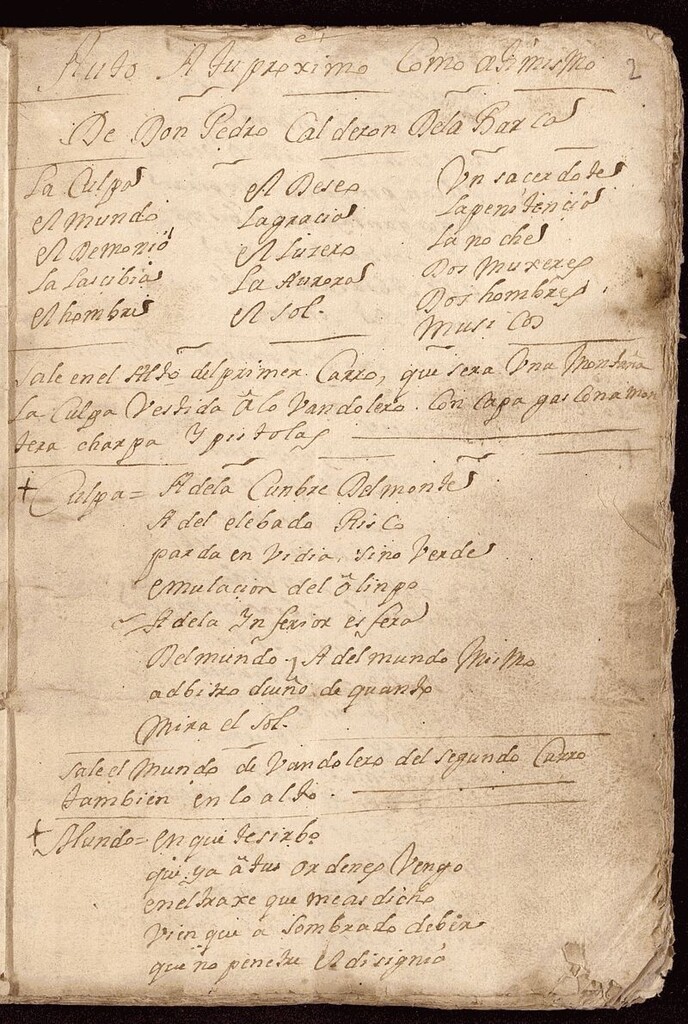 2
Auto A tu proximo Como a ti mismo
De Don Pedro Calderon De la Barca
La Culpa
el Mundo
el Demonio
La Lascibia
el hombre
el Deseo
La gracia
el Luzero
La Aurora
el sol.
Un sacerdote
La penitencia
La noche
Dos Muxeres
Dos hombres
Musicos
Sale en el Alto del primer Carro, que sera Una Montaña
La Culpa Vestida A lo Vandolero. Con capa gascona mon
tera charpa Y pistolas
+ Culpa = A de la Cunbre Del monte
A del elebado Risco
parda enVidia, sino Verde
emulacion del olinpo
A de la Ynferior esfera
Del mundo y A del mundo Mismo
adbitro dueño de quanto
Mira el sol.
Sale el Mundo de Vandolero del segundo Carro
tambien en lo alto.
+ Mundo = en que te sirbo
que ya a tus ordenes Vengo
en el traxe que me as dicho
Vien que a sombrado de bir
que no penetre el disignio